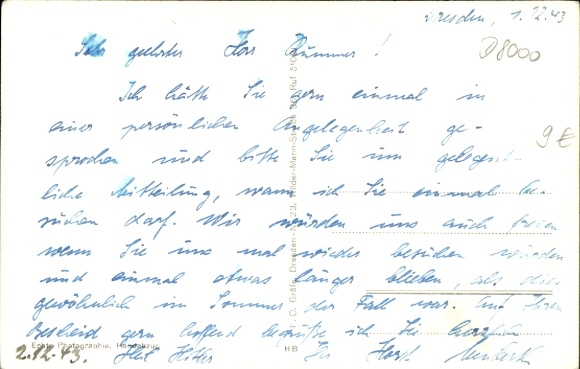 Dresden, 1.12.43
Sehr geehrter Herr Kummer!
D8000
Ich hätte Sie gern einmal in
einer persönlichen Angelegenheit ge-
9€
sprochen und bitte Sie um gelegent-
liche Mitteilung, wann ich Sie einmal be-
suchen darf. Wir würden uns auch freuen
wenn Sie uns mal wieder besuchen würden
und einmal etwas länger blieben, als dies
gewöhnlich im Sommer der Fall war. Auf Ihren
Bescheid gern hoffend begrüße ich Sie herzlich
Echte Photographie, Handabzug
2.12.43. Heil Hitler Ihr Horst
HB
O. Gräfe, Dresden-A. 23, -Mann-Straße Ruf 510